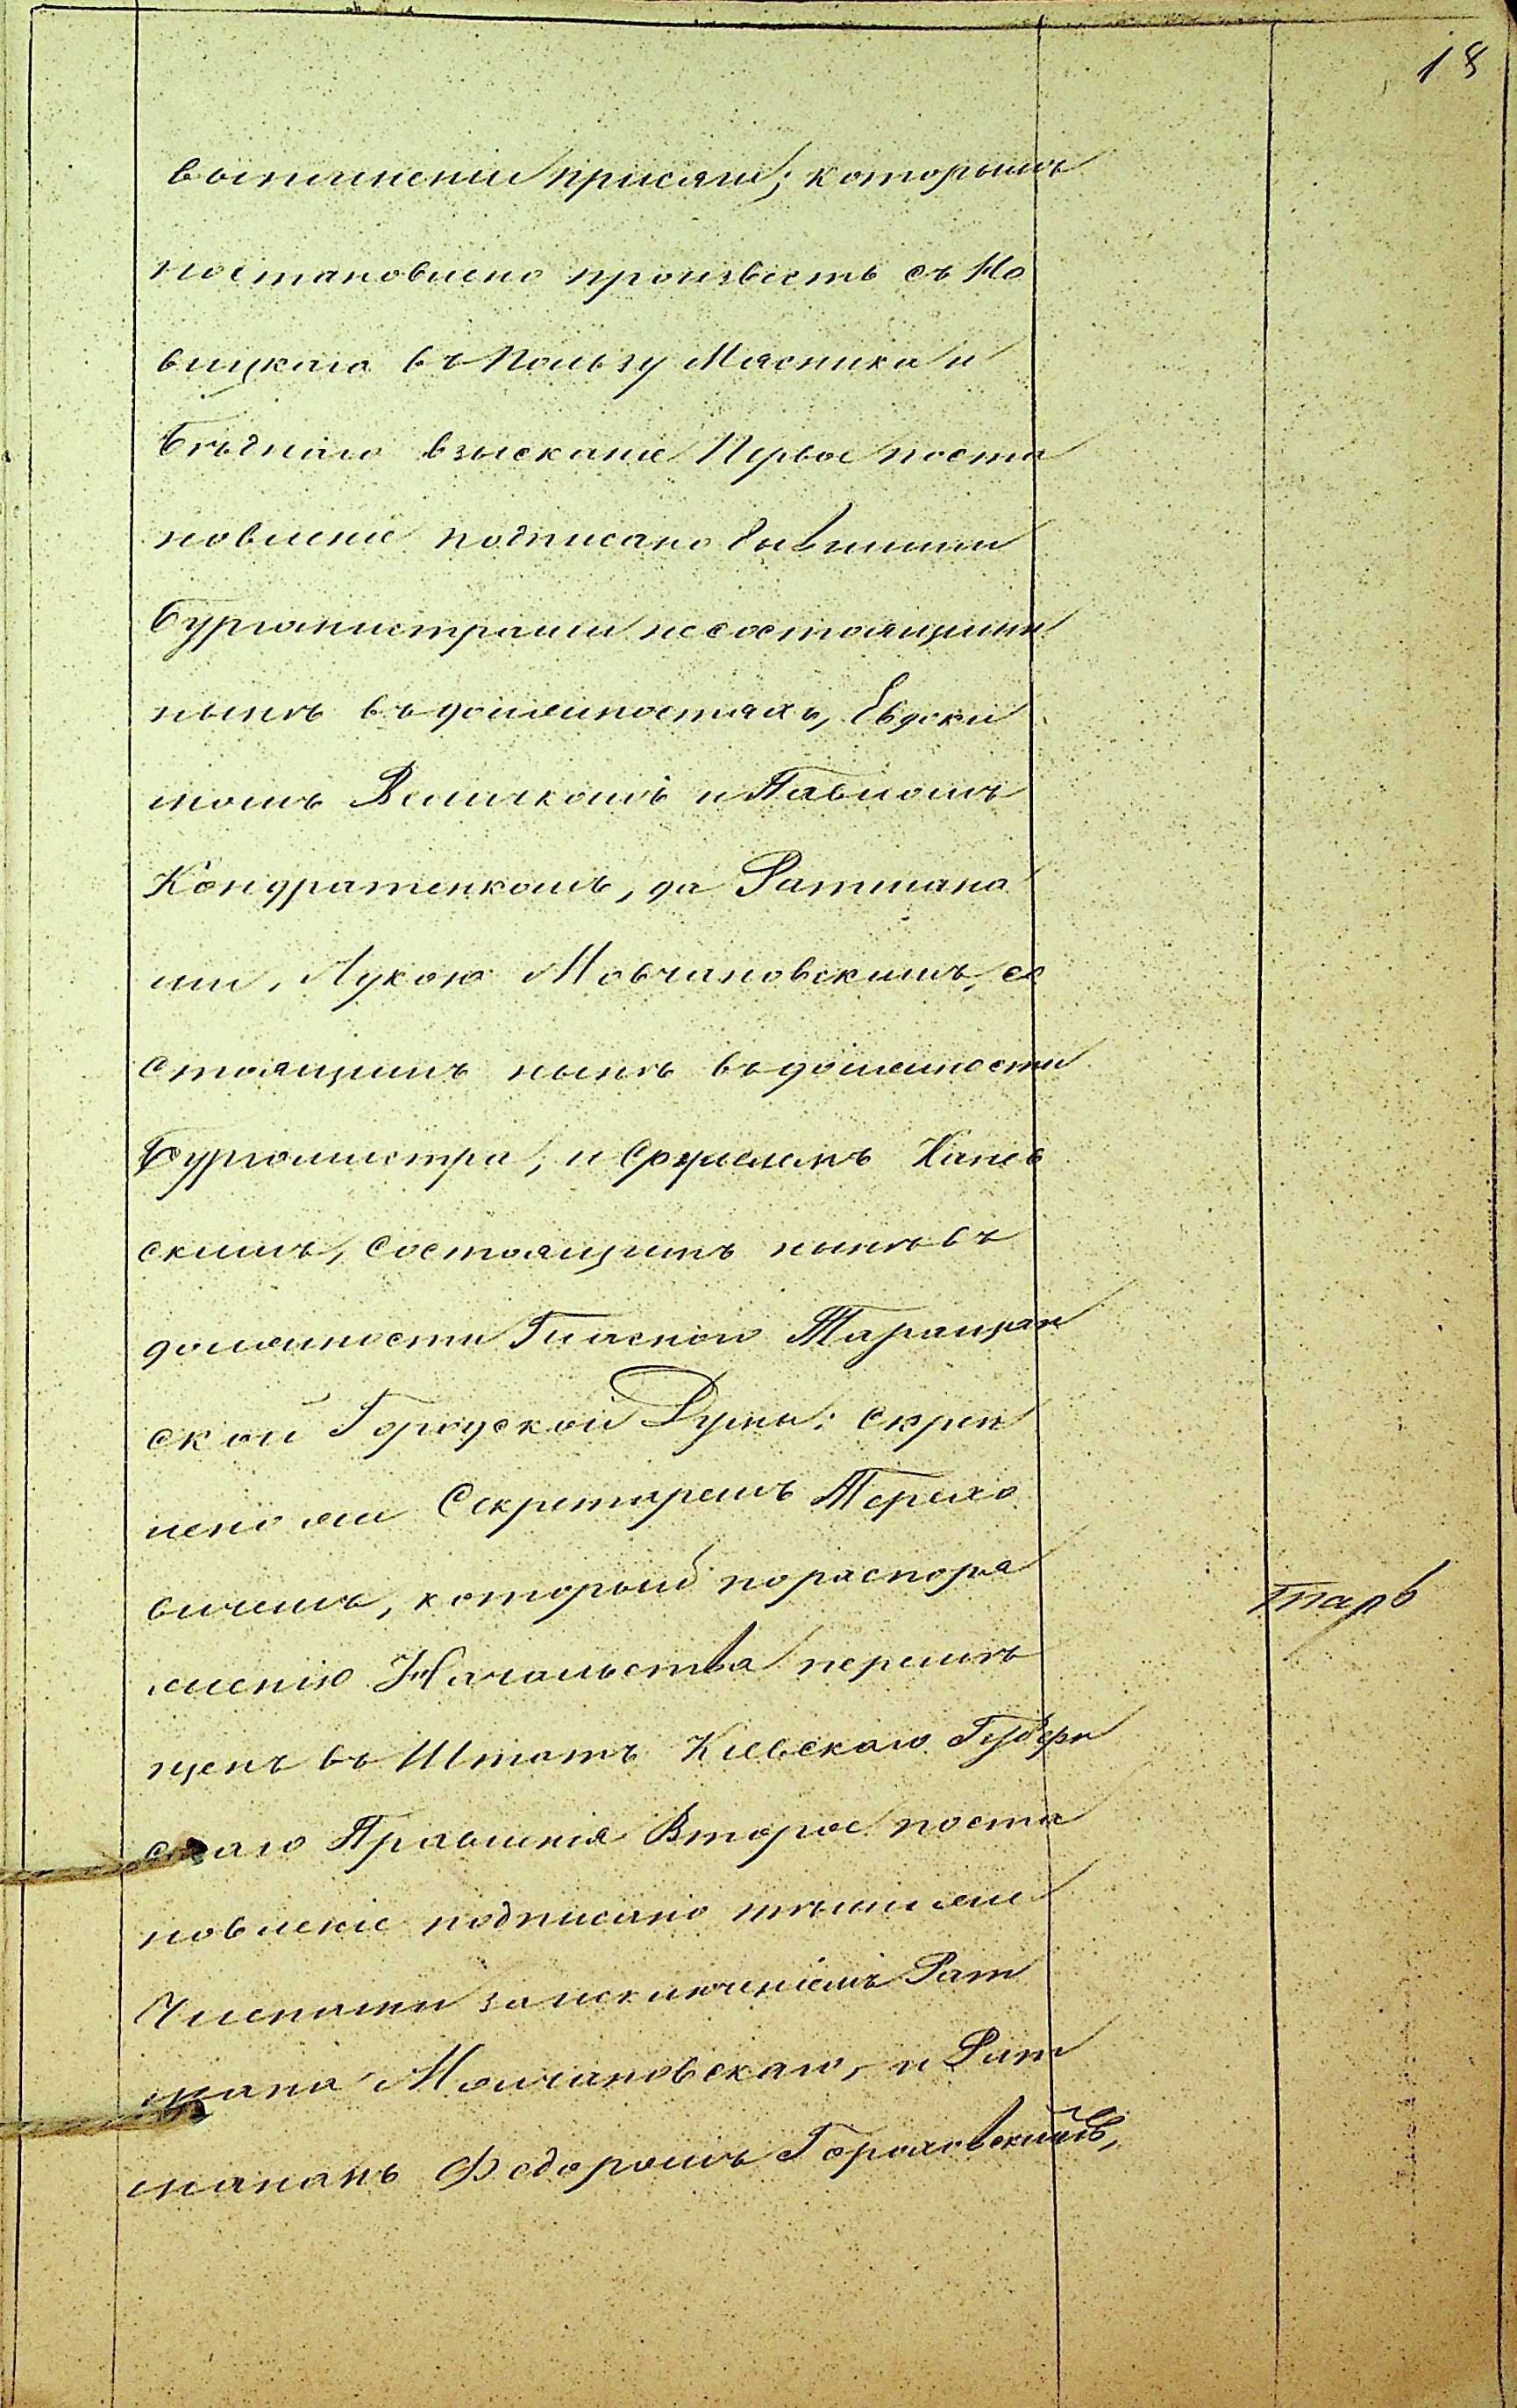 18
выполненіи присяги; которымъ
постановлено произвесть съ Но
вицкаго въ пользу Мясника и
Бѣднаго взысканіе Первое поста
новленіе подписано бывшими
Бургомистрами несостоящими
нынѣ въ должностяхъ, Евдоки
момъ Величкомъ и Павломъ
Кондратенкомъ, да Ратмана
ми, Лукою Мовчановскимъ, со
стоящимъ нынѣ въ должности
Бургомистра, и Канев
скимъ, состоящимъ нынѣ въ
должности Гласного Таращан
ской Городской Думы; скрѣп
лено же Секретаремъ Терехо
вичемъ, который по распоря
женію Начальства перемѣ
щенъ въ Штатъ Кіевскаго Губерн
скаго Правленія Второе поста
новленіе подписано тѣми же
Членами за исключеніемъ Рат
мана Молчановскаго, и Рат
маномъ Федоромъ Гороховскимъ,